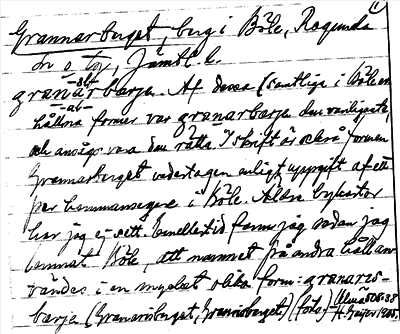 1
Grannarberget, berg i Böle, Ragunda
sn o tg, Jämtl. l.
-ăt-
granărbærje. Af dessa (samtliga i Böle en
-ab-
hållna former var granarbærje den vanligaste,
och ansågs vara den rätta. I skrift är också formen
Grannarberget vedertagen enligt uppgift af ett
par hemmansegare i Böle. Äldre bykartor
har jag ej sett. Emellertid fann jag sedan jag
lemnat Böle, att namnet på andra håll an-
vändes i en mycket olika form: granaris-
bærje (Granarisberget, Grannisberget) (foto)
Alma 508:33
H. Geijer 1905.